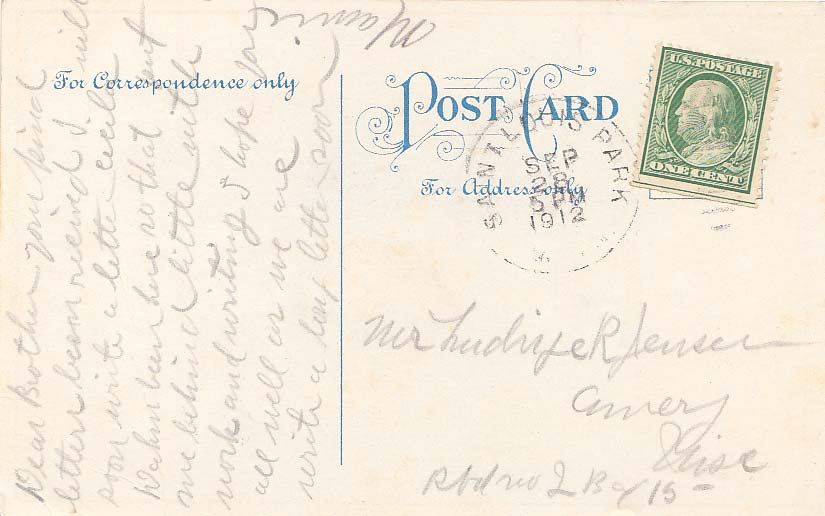 For Correspondence only
POST CARD
For Address only
U.S. POSTAGE
ONE CENT
SAINT LOUIS PARK
SEP
5 PM
1912
Dear Brother your kind
letter been received I will
soon write a letter Cecilia
Wahn been here so that put
me behind little with
work and writing I hope you
all well as we are
write a long letter soon
Mamie
Mr Ludvig R Jensen
Amery
Wisc
Rfd no 2 Box 15